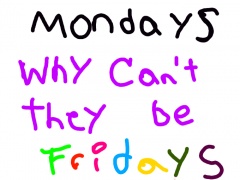 MondayS
Why Can't
they be
FridayS